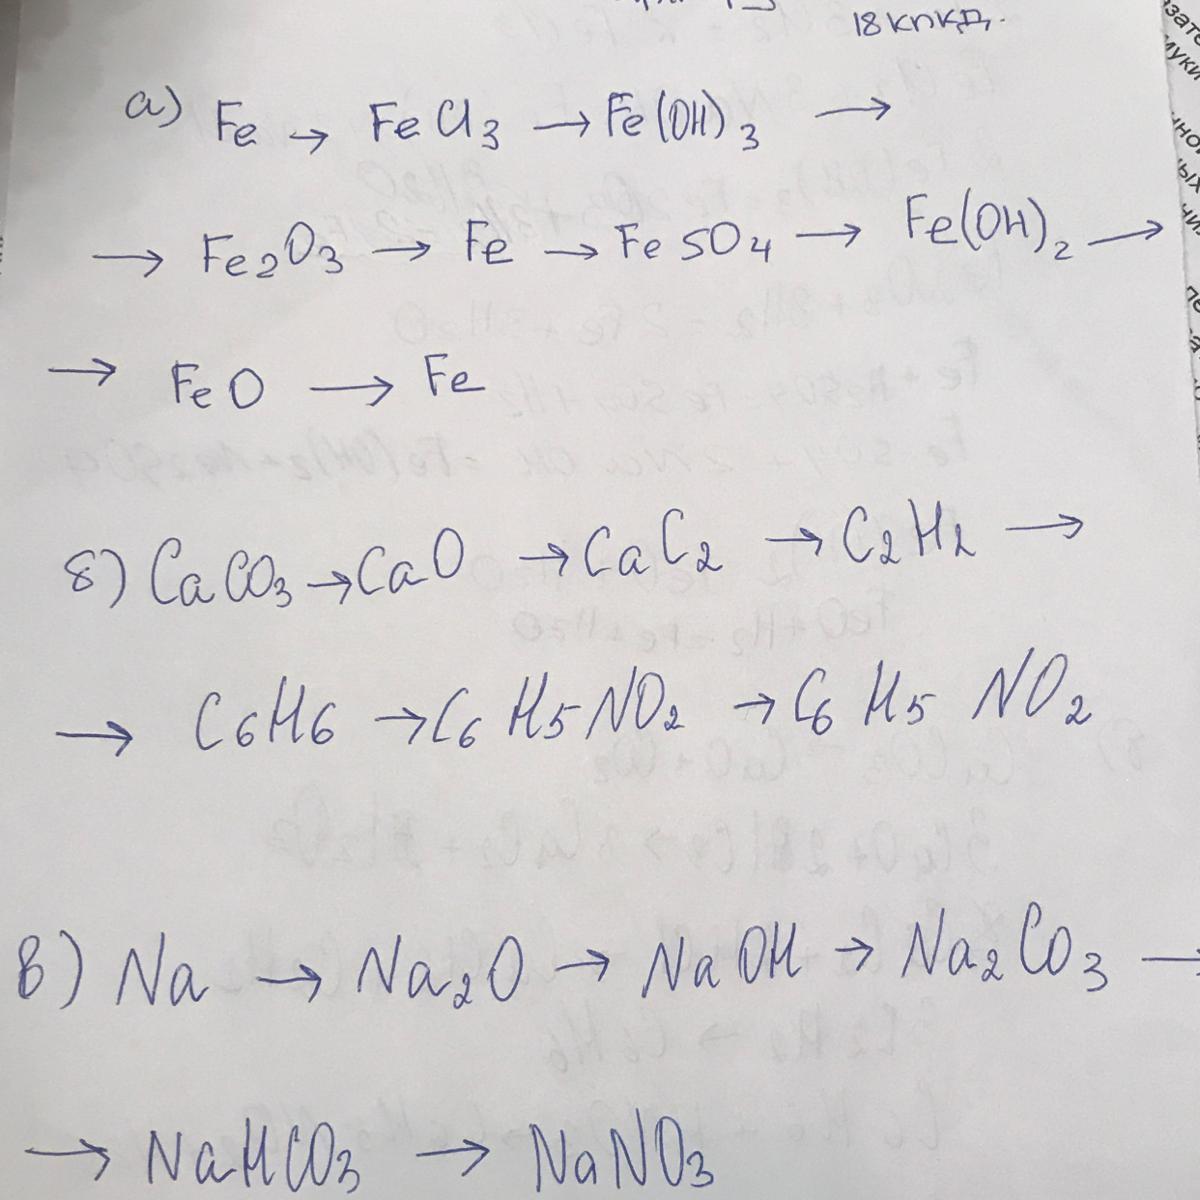 18 КПКД.
а) Fe → FeCl3 → Fe(OH)3 →
→ Fe2O3 → Fe → FeSO4 → Fe(OH)2 →
→ FeO → Fe
б) CaCO3 → CaO → CaC2 → C2H2 →
→ C6H6 → C6H5NO2 → C6H5NO2
в) Na → Na2O → NaOH → Na2CO3 →
→ NaHCO3 → NaNO3